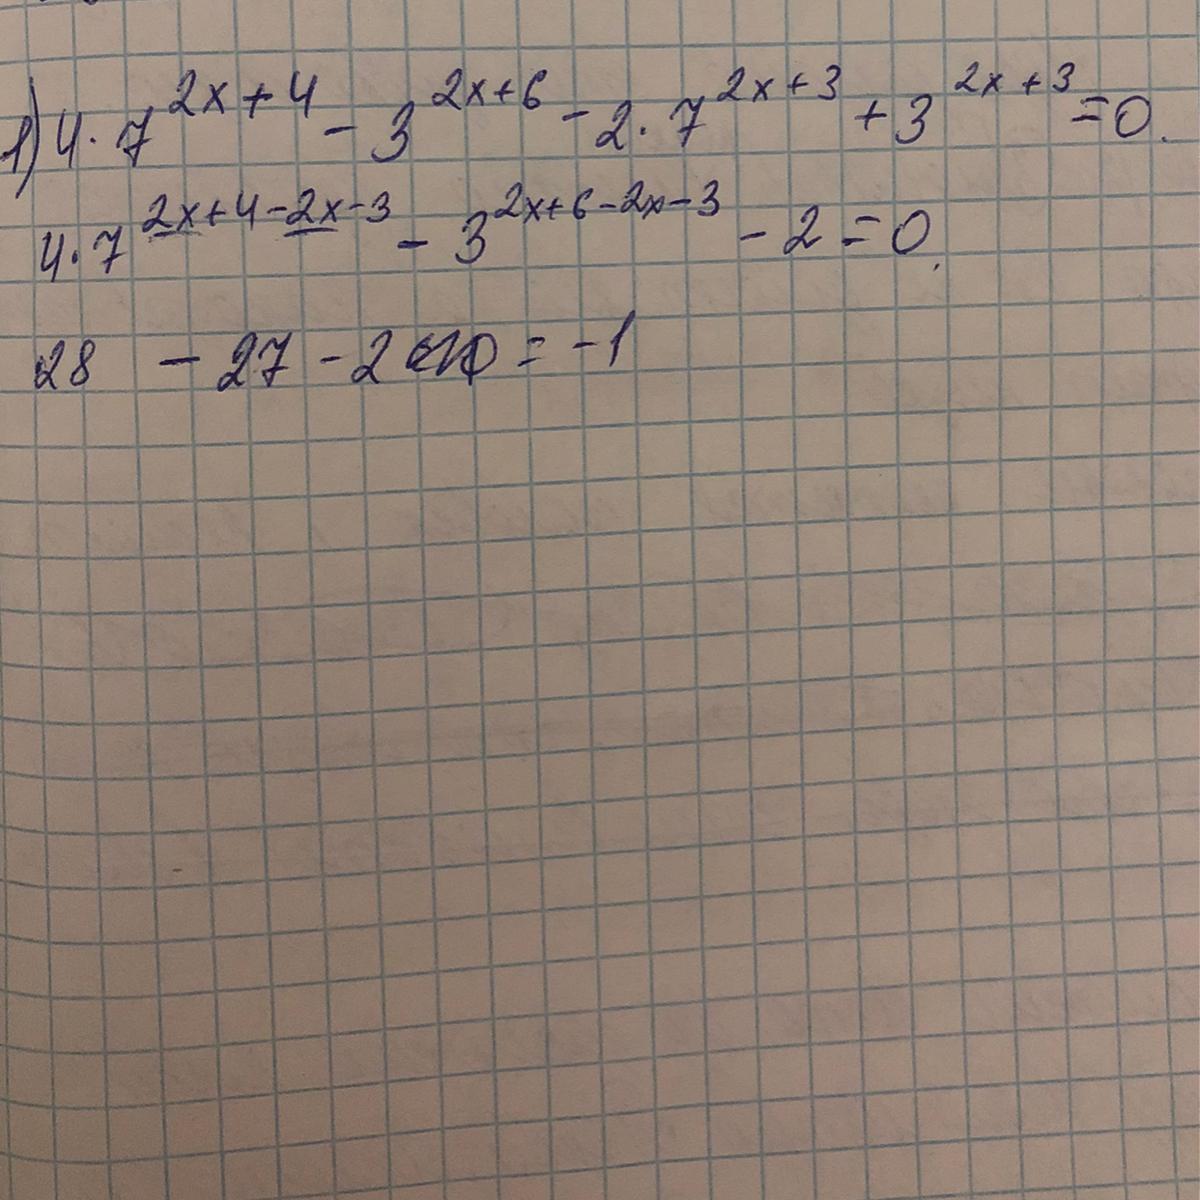 1) 4·7^{2x+4} - 3^{2x+6} - 2·7^{2x+3} + 3^{2x+3} = 0.
4·7^{2x+4-2x-3} - 3^{2x+6-2x-3} - 2 = 0.
28 - 27 - 2 = -1